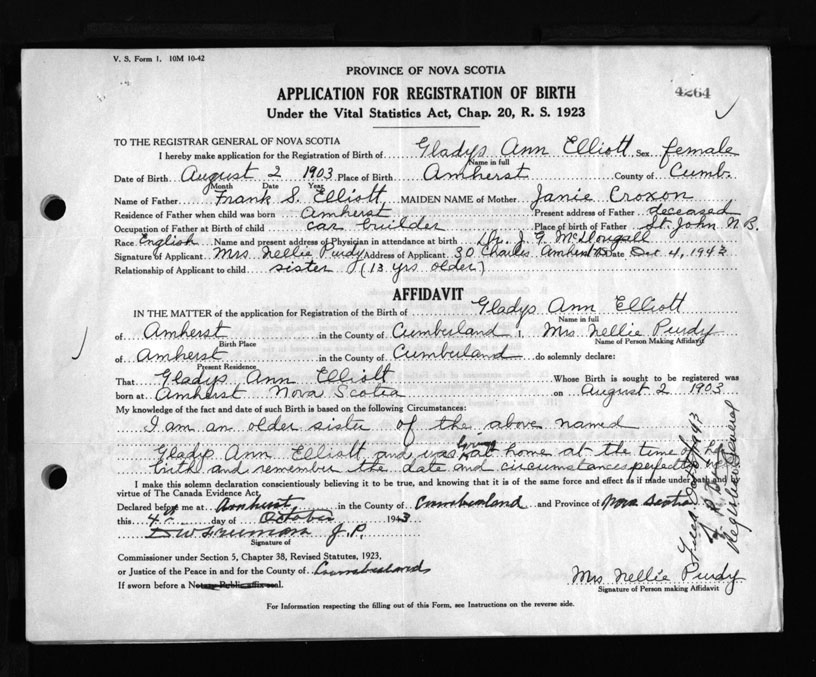 V. S. Form 1. 10M 10-42
PROVINCE OF NOVA SCOTIA
APPLICATION FOR REGISTRATION OF BIRTH
4264
Under the Vital Statistics Act, Chap. 20, R. S. 1923
TO THE REGISTRAR GENERAL OF NOVA SCOTIA
I hereby make application for the Registration of Birth of Gladys Ann Elliott Sex female
Name in full
Date of Birth August 2 1903 Place of Birth Amherst County of Cumb.
Month Date Year
Name of Father Frank S. Elliott, MAIDEN NAME of Mother Janie Croxon
Residence of Father when child was born Amherst Present address of Father deceased
Occupation of Father at Birth of child car builder Place of birth of Father St. John N.B.
Race English Name and present address of Physician in attendance at birth Dr. J. G. McDougall
Signature of Applicant Mrs Nellie Purdy Address of Applicant 30 Charles Amherst Date Dec 4, 1943
Relationship of Applicant to child sister (13 yrs older)
AFFIDAVIT
IN THE MATTER of the application for Registration of the Birth of Gladys Ann Elliott
Name in full
of Amherst in the County of Cumberland I, Mrs Nellie Purdy
Birth Place Name of Person Making Affidavit
of Amherst in the County of Cumberland do solemnly declare:
Present Residence
That Gladys Ann Elliott Whose Birth is sought to be registered was
born at Amherst Nova Scotia on August 2 1903
My knowledge of the fact and date of such Birth is based on the following Circumstances:
I am an older sister of the above named
Gladys Ann Elliott and was living at home at the time of her
birth and remember the date and circumstances perfectly well
I make this solemn declaration conscientiously believing it to be true, and knowing that it is of the same force and effect as if made under oath and by
virtue of The Canada Evidence Act.
Declared before me at Amherst in the County of Cumberland and Province of Nova Scotia
this 4th day of October 1943
J.P.
Signature of
Commissioner under Section 5, Chapter 38, Revised Statutes, 1923,
or Justice of the Peace in and for the County of Cumberland
If sworn before a Notary Public affix seal.
Mrs Nellie Purdy
Signature of Person making Affidavit
For Information respecting the filling out of this Form, see Instructions on the reverse side.
Registrar General